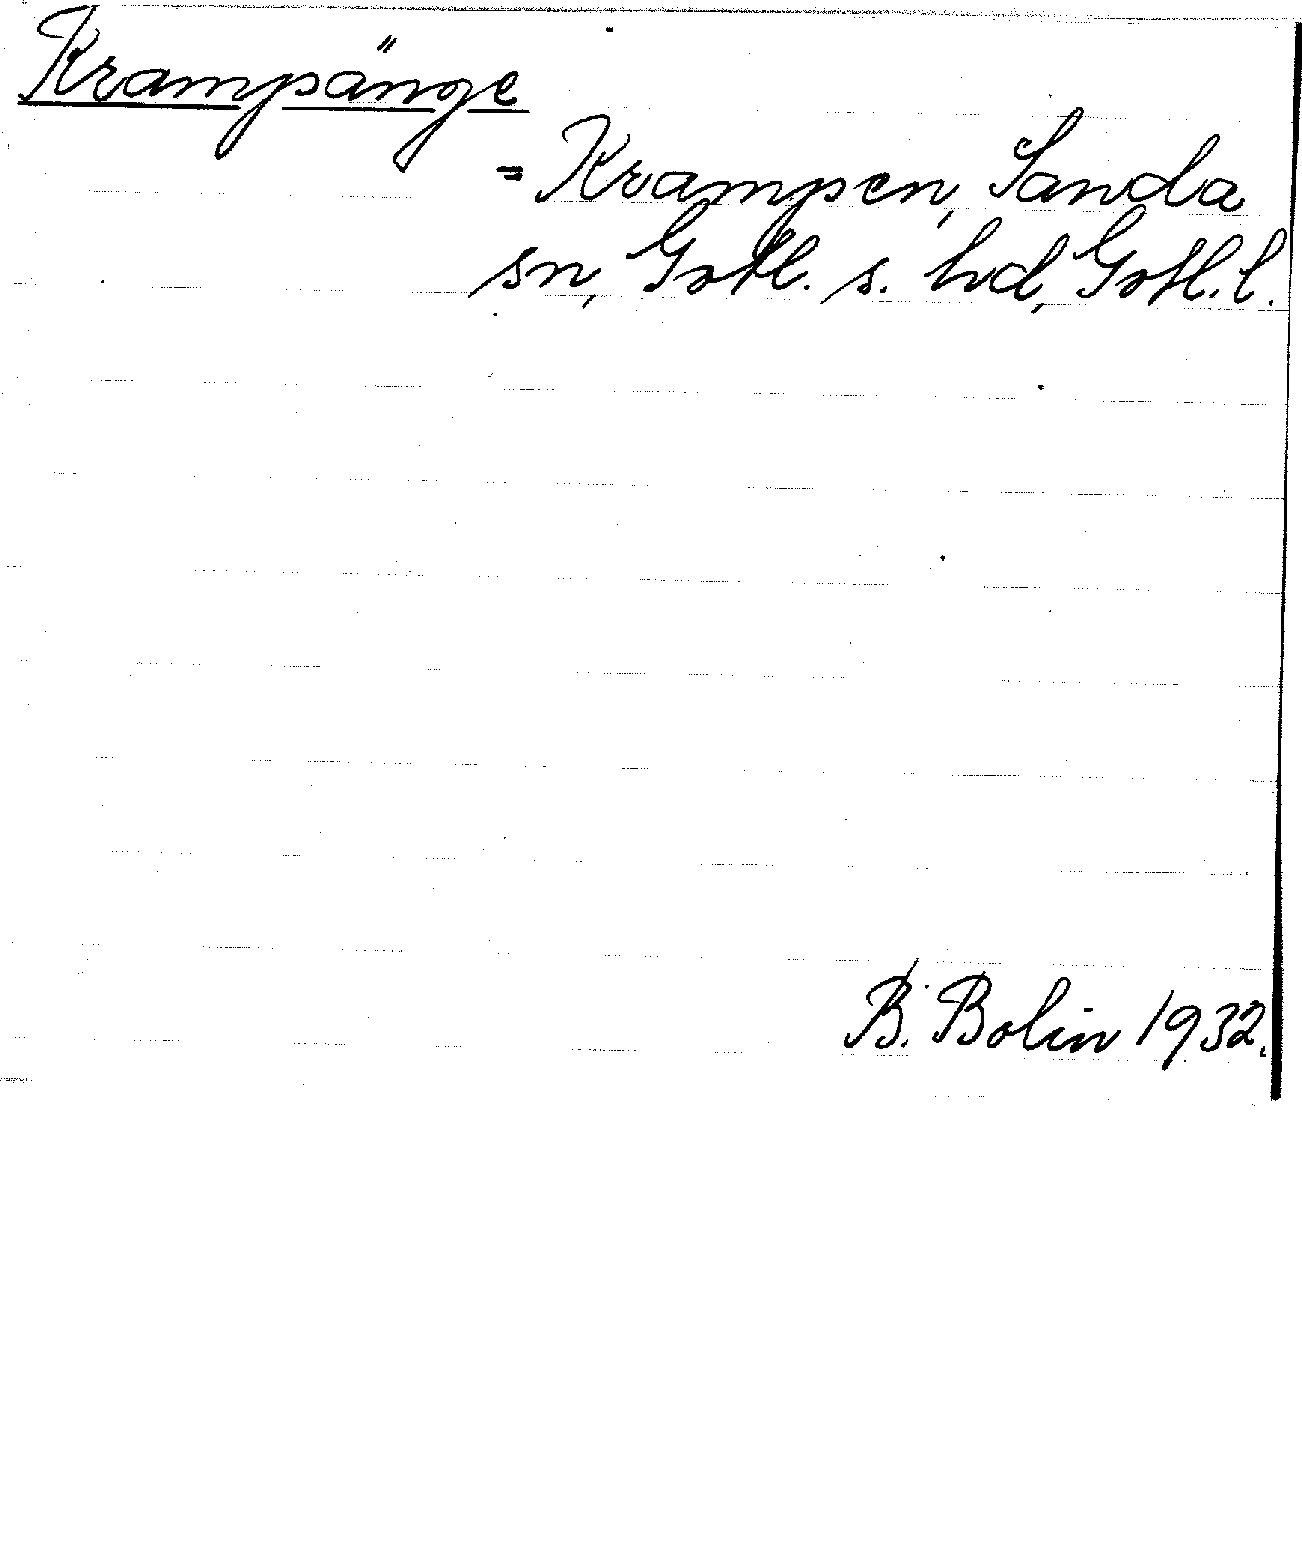 Krampänge
= Krampen, Sanda
sn, Gotl. s. hd, Gotl. l.
B. Bolin 1932.